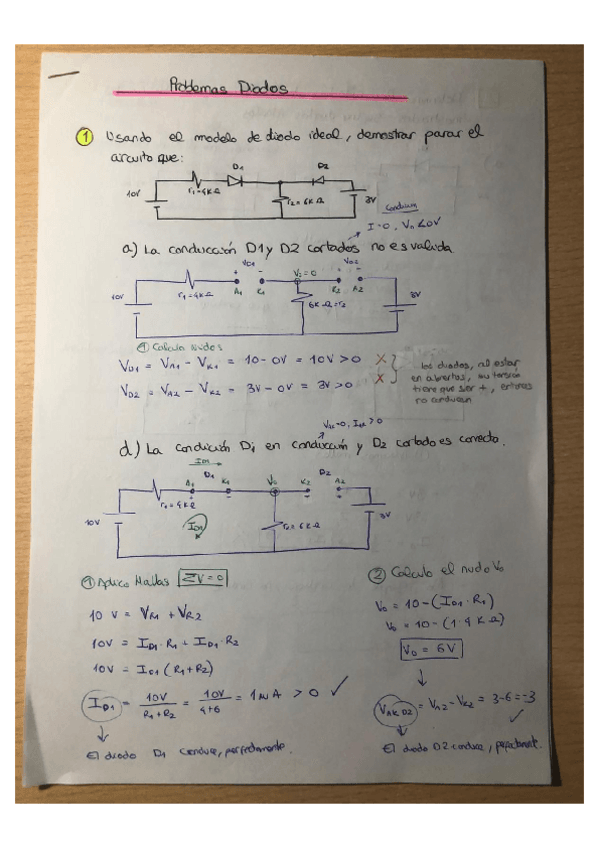 Problemas Diodos
1 Usando el modelo de diodo ideal, demostrar parar el
circuito que:
D1 D2
10V r1=4KΩ r2=6KΩ 3V
I=0, Vn<0V
a) La conducción D1 y D2 cortados no es valida
VD1 V0=0 VD2
+ - + -
10V r1=4KΩ A1 K1 6KΩ=r2 K2 A2 3V
1 Calcula nudos
VD1 = VA1 - VK1 = 10-0V = 10V >0 X
VD2 = VA2 - VK2 = 3V-0V = 3V >0 X
los diodos, al estar
en abertos, su tensión
tiene que ser +, entonces
no conducen
d) La condición Di en conducción y D2 cortado es correcto.
ID1
A1 D1 K1 V0 K2 D2 A2
10V r1=4KΩ ID1 r2=6KΩ 3V
1 Aplico Mallas ΣV=0
10V = VR1 + VR2
10V = ID1·R1 + ID1·R2
10V = ID1 (R1+R2)
ID1 = 10V/R1+R2 = 10V/4+6 = 1mA >0 ✓
El diodo D1 conduce, perfectamente.
2 Calculo el nudo V0
V0 = 10-(ID1·R1)
V0 = 10-(1·4KΩ)
V0 = 6V
VAK D2 = VA2 - VK2 = 3-6=-3
✓
El diodo D2 conduce, perfectamente.